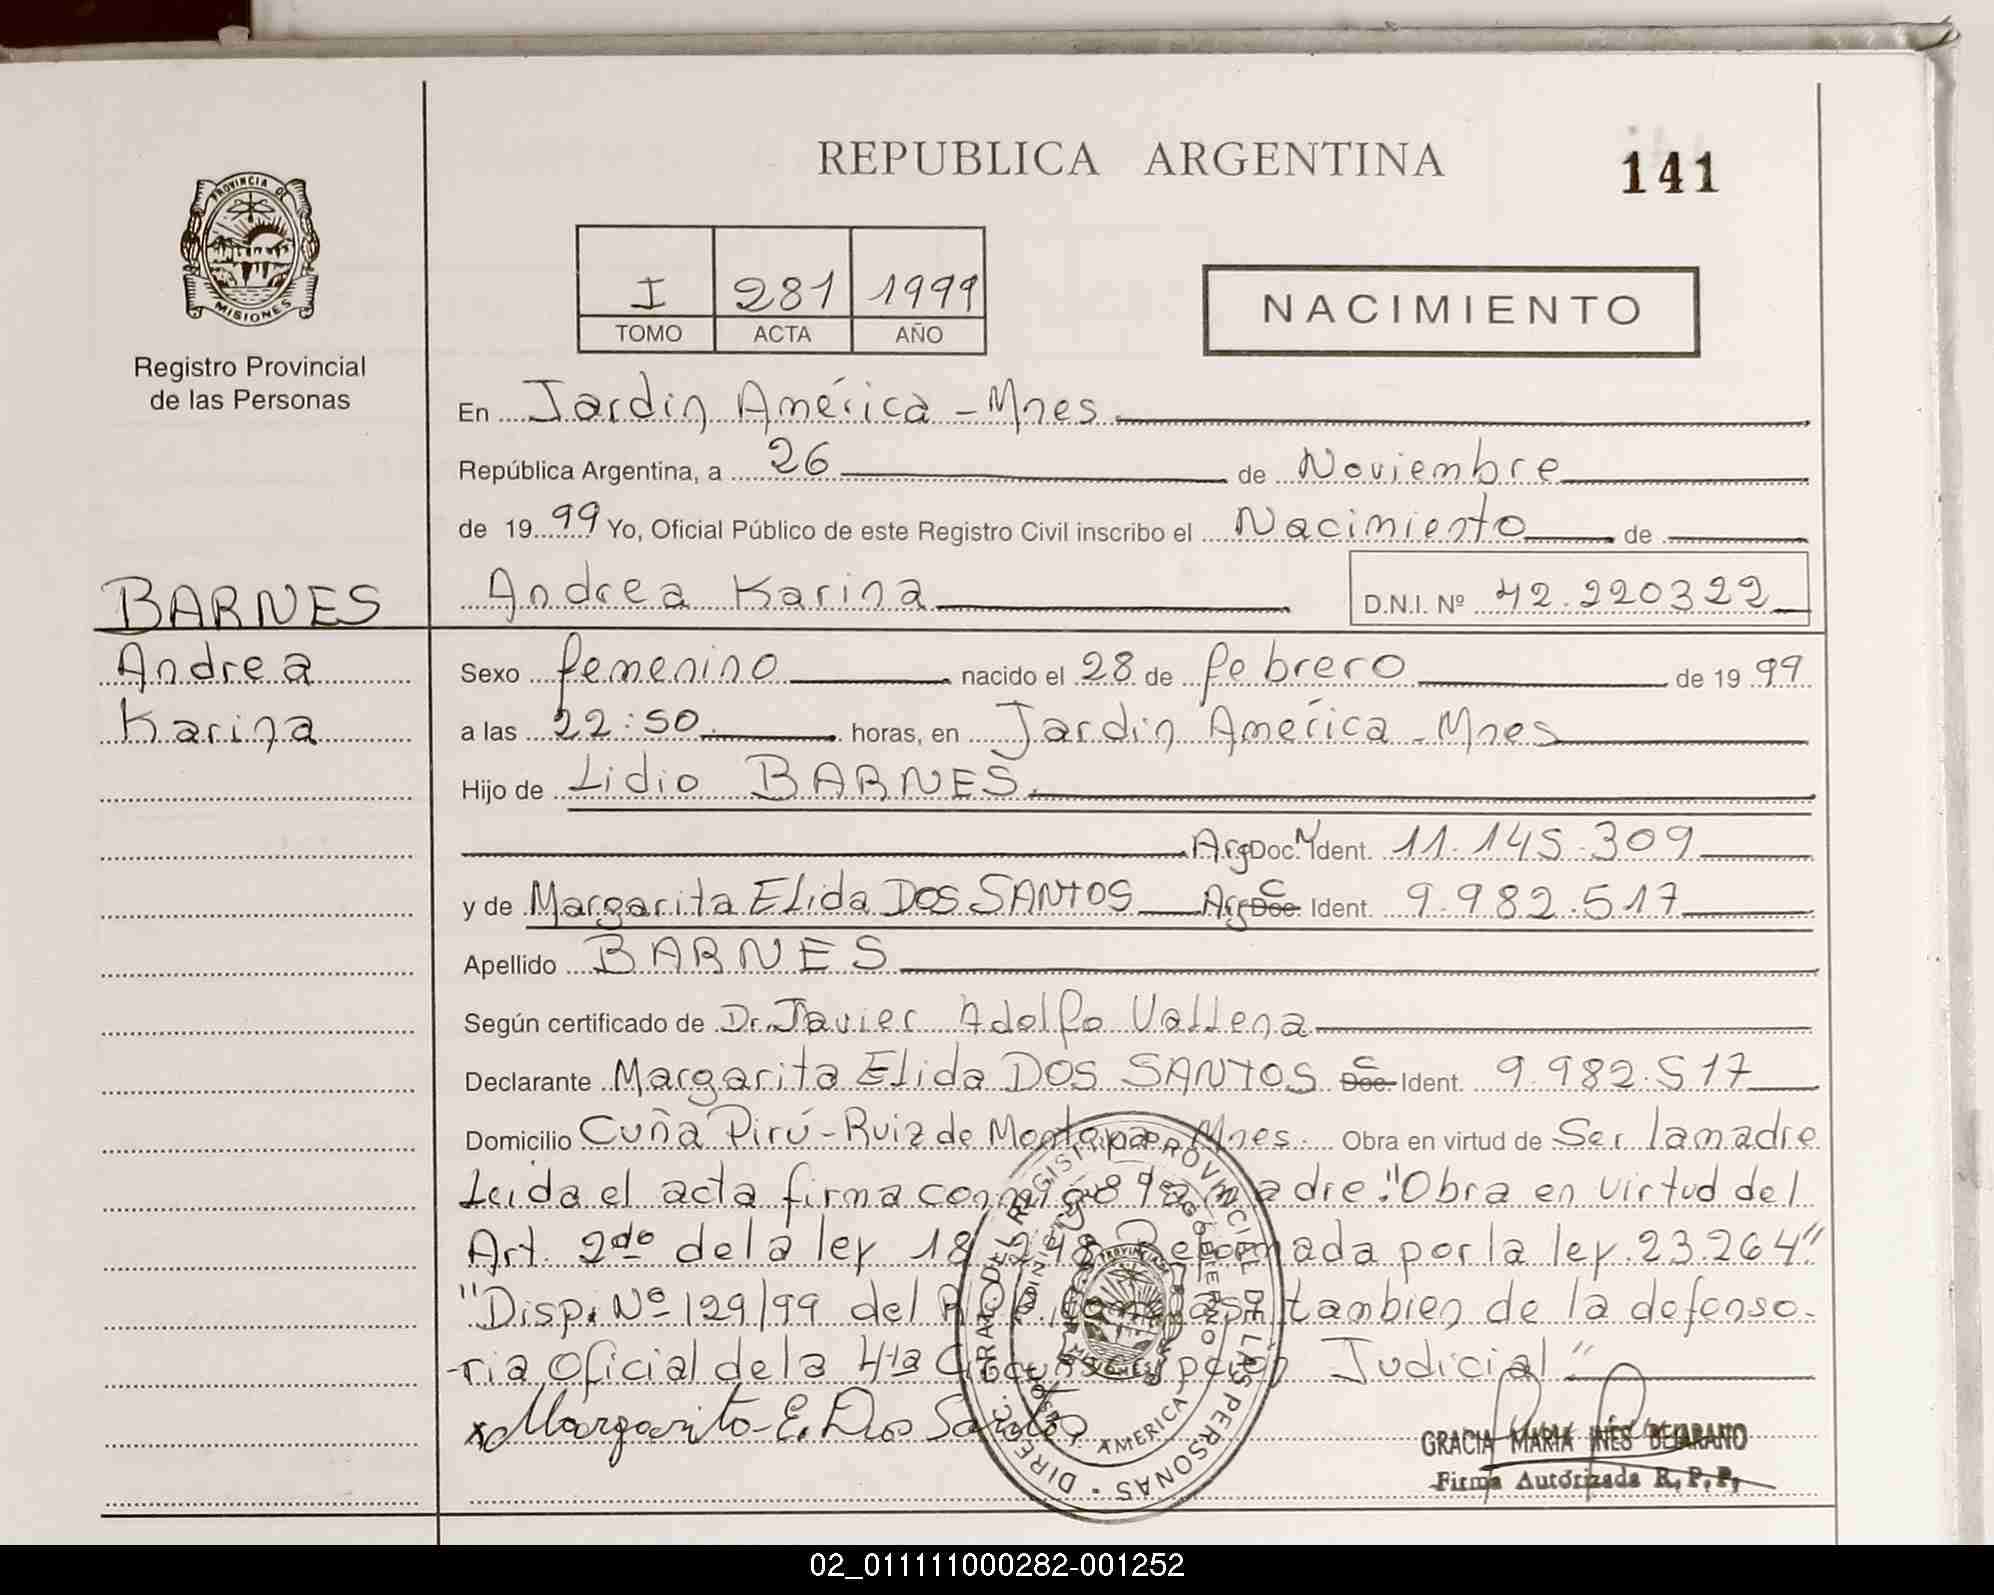 REPUBLICA ARGENTINA
141
PROVINCIA DE
MISIONES
Registro Provincial
de las Personas
I 281 1999
TOMO ACTA AÑO
NACIMIENTO
En Jardin América - Mnes
República Argentina, a 26 de Noviembre
de 19 99 Yo, Oficial Público de este Registro Civil inscribo el Nacimiento de
BARNES
Andrea
Karina
Andrea Karina D.N.I. Nº 42.220322
Sexo femenino nacido el 28 de febrero de 19 99
a las 22:50 horas, en Jardin América - Mnes
Hijo de Lidio BARNES
Arg Doc. N Ident. 11.145.309
y de Margarita Elida DOS SANTOS Arg Doc. C Ident. 9.982.517
Apellido BARNES
Según certificado de Dr. Javier Adolfo
Declarante Margarita Elida DOS SANTOS Doc. C Ident. 9.982.517
Domicilio Cuña Pirú - Ruiz de Montoya - Mnes. Obra en virtud de Ser la madre
Leida el acta firma conmigo la madre "Obra en virtud del
Art. 2do de la ley 18.248 Reformada por la ley 23.264"
"Disp. Nº 129/99 del tambien de la defenso-
ria Oficial de la 4ta Circunscripcion Judicial"
x Margarita E. Dos Santos
DIREC. GRAL. DEL REGISTRO PROVINCIAL DE LAS PERSONAS
AMERICA
GRACIA MARIA INES BEJARANO
Firma Autorizada R.P.P.
02_011111000282-001252